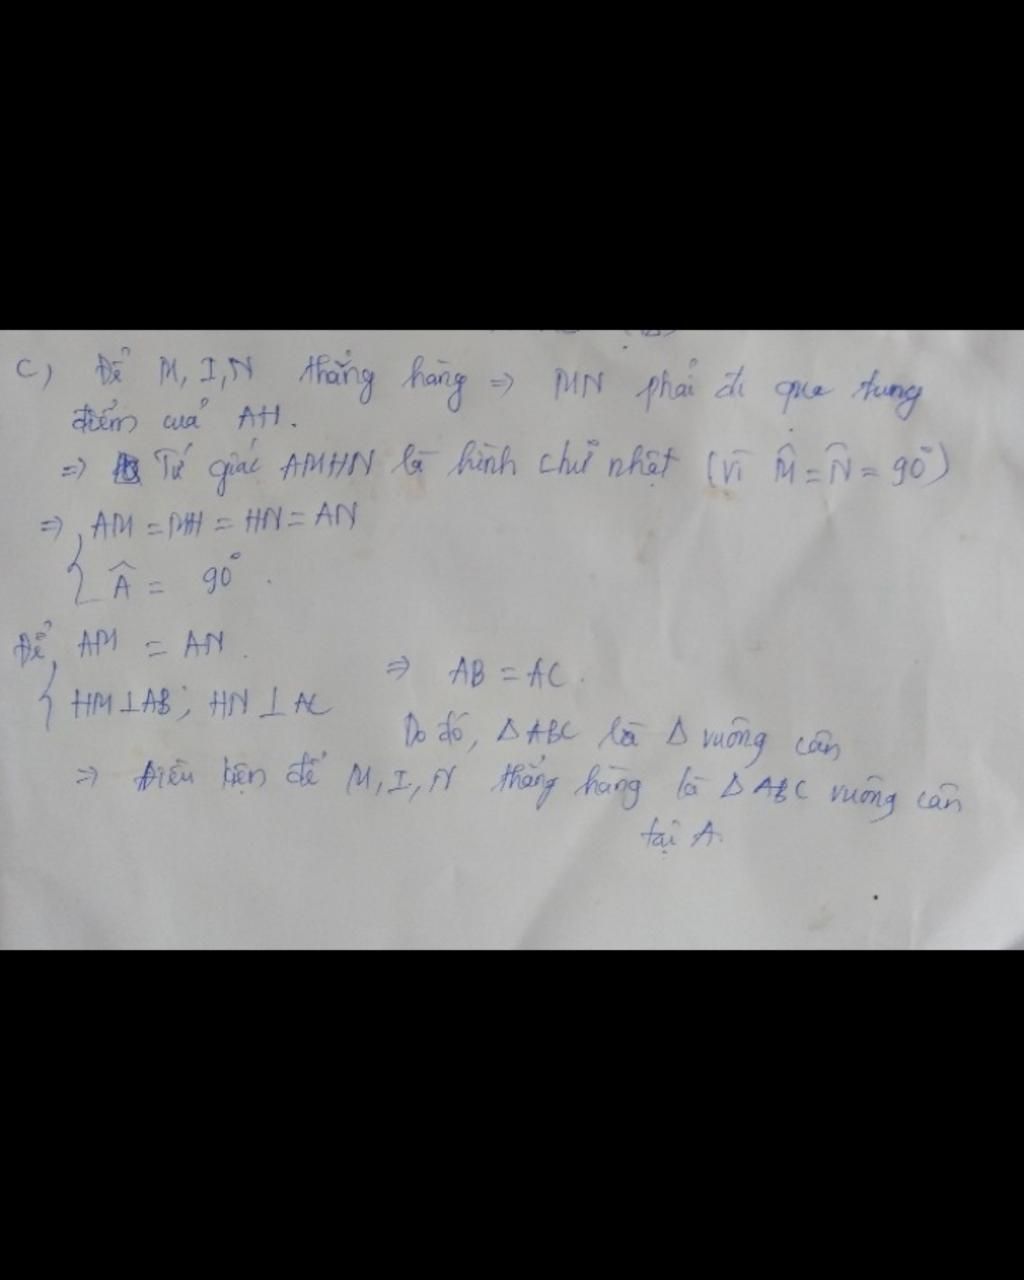 c) Để M, I, N thẳng hàng => MN phải đi qua trung
điểm cuả AH.
=> Tứ giác AMHN là hình chữ nhật (vì M̂ = N̂ = 90°)
=> { AM = MH = HN = AN
Â = 90°.
Để { AM = AN.
HM ⊥ AB; HN ⊥ AC
=> AB = AC.
Do đó, Δ ABC là Δ vuông cân
=> Điều kiện để M, I, N thẳng hàng là Δ ABC vuông cân
tại A.